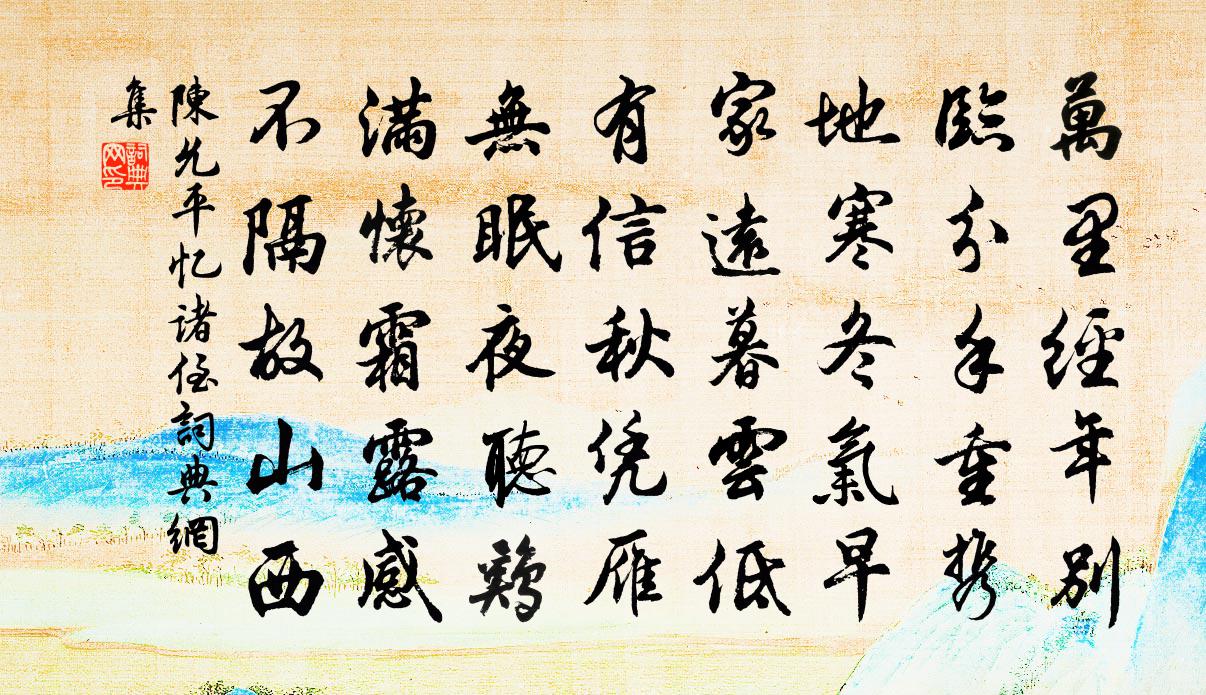 萬里經年別
臨分手重携
地寒冬氣早
家遠暮雲低
有信秋凭雁
無眠夜聽鶏
滿懷霜露感
不隔故山西
陳允平忆諸侄詞典網
集
詞典
网印